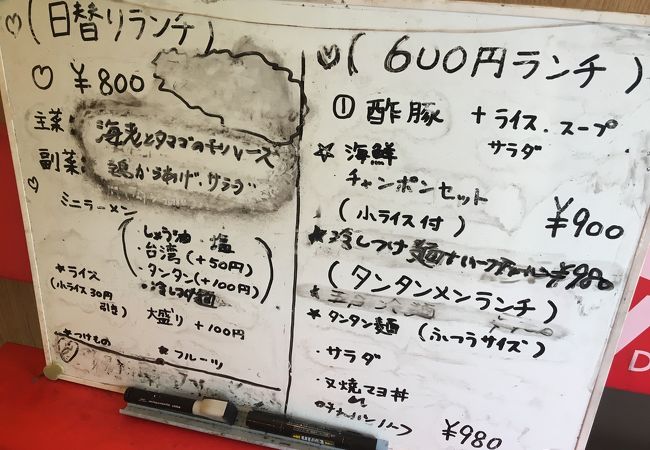 (日替りランチ)
¥800
主菜
海老とタマゴの
副菜
鶏からあげ、サラダ
ミニラーメン
(しょう油 塩
・台湾(+50円)
・タンタン(+100円)
・冷しつけ麺)
大盛り +100円
★ライス
(小ライス30円
引き)
★つけもの
★フルーツ
(600円ランチ)
① 酢豚 +ライス.スープ
サラダ
☆海鮮
チャンポンセット
(小ライス付) ¥900
★冷しつけ麺+ハーフ ¥980
(タンタンメンランチ)
★タンタン麺(ふつうサイズ)
・サラダ
・叉焼マヨ丼
or
¥980